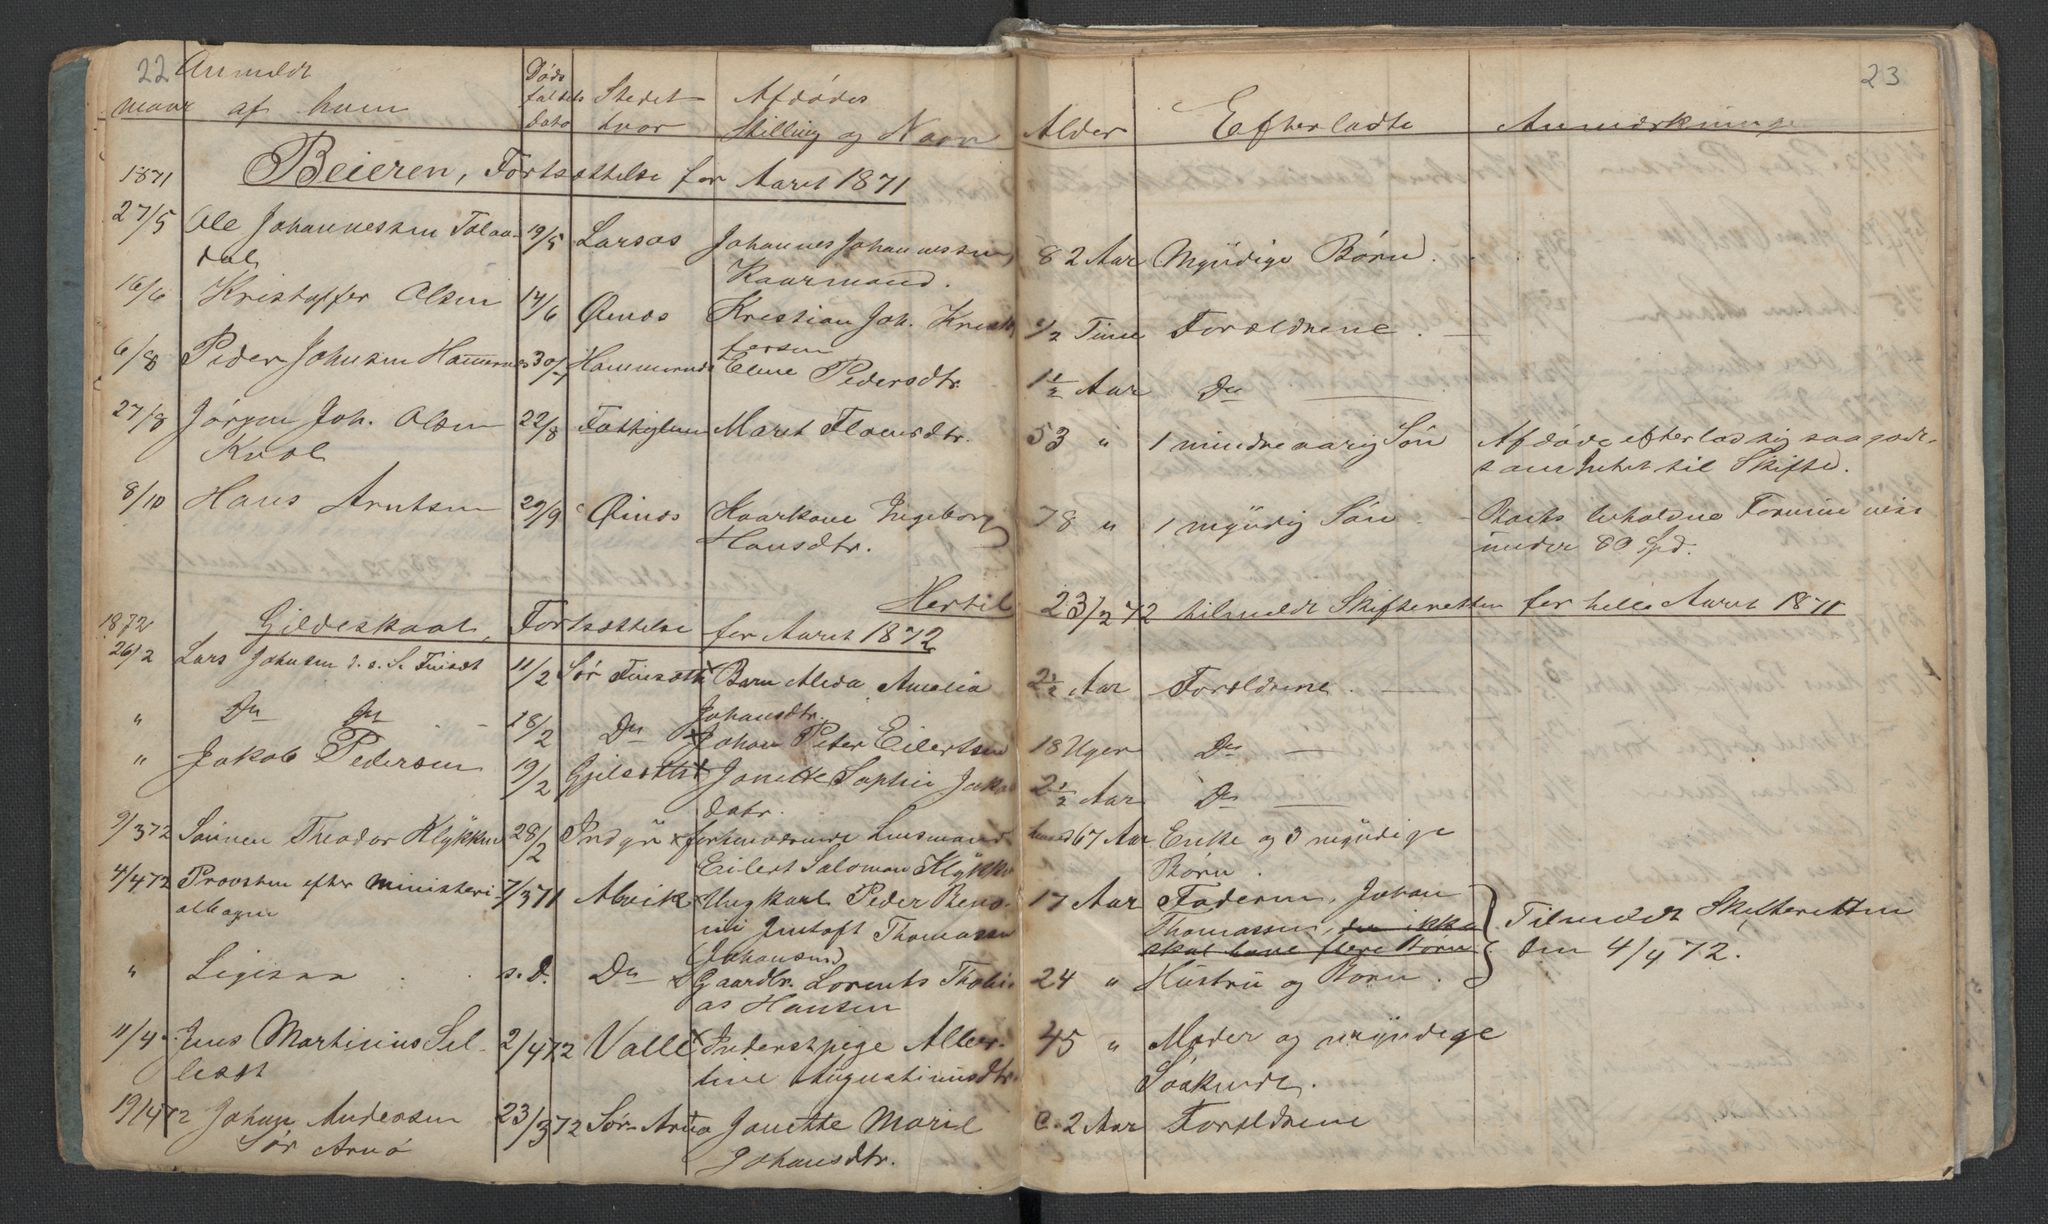 22 Anmeldt Døds Stedet Afdødes 23
naar af hvem faldets hvor Stilling og Navn Alder Efterladte Anmærkninge
dato
1871 Beieren, Fortsættelse for Aaret 1871
27/5 Ole Johannessen Tolaa- 19/5 Larsos Johannes Johannessen 82 Aar Myndige Børn.
dal Kaarmand.
16/6 Kristoffer Olsen 14/6 Øinæs Kristian Joh. Kristof 1/2 Time Forældrene.
fersen
6/8 Peder Johnsen Hammernes 30/7 Hammernæs Eline Pedersdtr. 1 1/2 Aar Do
27/8 Jørgen Joh. Olsen 22/8 Marit Floensdtr. 53 " 1 mindreaarig Søn Afdøde efterlod sig saagodt
Kvæl som Intet til Skifte.
8/10 Hans Arntsen 29/9 Øinæs Kaarkone Ingeborg 78 " 1 myndig Søn Boets beholdne Formue vist
Hansdtr. under 80 Spd.
Hertil 23/2 72 tilmeldt Skifteretten for hele Aaret 1871
1872 Gildeskaal, Fortsættelse for Aaret 1872
26/2 Lars Johnsen S. Finsæt 11/2 Sør Finsæth x Barn Alida Amalia 2 1/2 Aar Forældrene.
Johansdtr.
" Do Do 18/2 Do x Johan Peter Eilertsen 18 Uger Do
" Jakob Pedersen 19/2 Gjelsæth x Janette Sophie Jakobs 2 1/2 Aar Do
datr.
9/3 72 Sønnen Theodor Klykken 28/2 Indyr x forhenværende Husmand 67 Aar Enke og 3 myndige
Eilert Salomon Klykken Børn.
4/4 72 Provsten efter Ministeri- 7/3 71 Alvik x Ungkarl Peder Beno- 17 Aar Faderen, Johan
albogen ni Justoft Thomassen Thomassen, der ikke Tilmeldt Skifteretten
(Johansen) skal have flere Børn den 4/4 72.
" Ligesaa s.d. Do x Gaardbr. Lorents Thobi- 24 " Hustru og Børn.
as Hansen
11/4 Jens Martinius Sel- 2/4 72 Valle x Inderstpige Alber- 45 " Moder og myndige
læst tine Augustinusdtr. Søskende.
19/4 72 Johan Andersen 23/3 72 Sør-Arnø Janette Marie c. 2 Aar Forældrene
Sør Arnø Johansdtr.